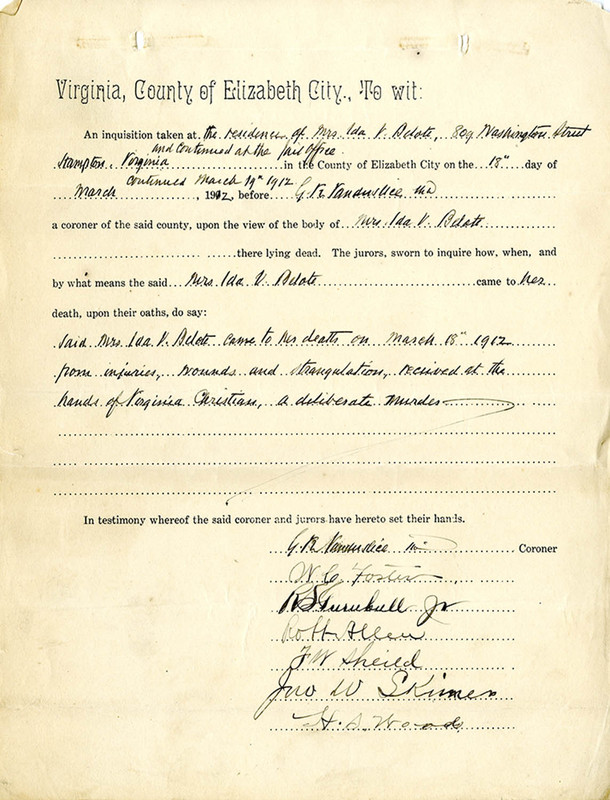 Virginia, County of Elizabeth City., To wit:
An inquisition taken at the residence of Mrs Ida V. Belote, 809 Washington Street
and continued at the Jail Office
Hampton, Virginia in the County of Elizabeth City on the 18" day of
continued March 19th 1912
March 1912, before G K Vanderslice MD
a coroner of the said county, upon the view of the body of Mrs. Ida V. Belote
there lying dead. The jurors, sworn to inquire how, when, and
by what means the said Mrs. Ida V. Belote came to her
death, upon their oaths, do say:
Said Mrs. Ida V. Belote came to her death on March 18" 1912
from injuries, wounds and strangulation, received at the
hands of Virginia Christian, a deliberate murder
In testimony whereof the said coroner and jurors have hereto set their hands.
G. K. Vanderslice MD Coroner
W. C. Foster
R S Turnbull Jr
Robt Allen
F W Sheild
Jno W Skinner
H. S. Woods